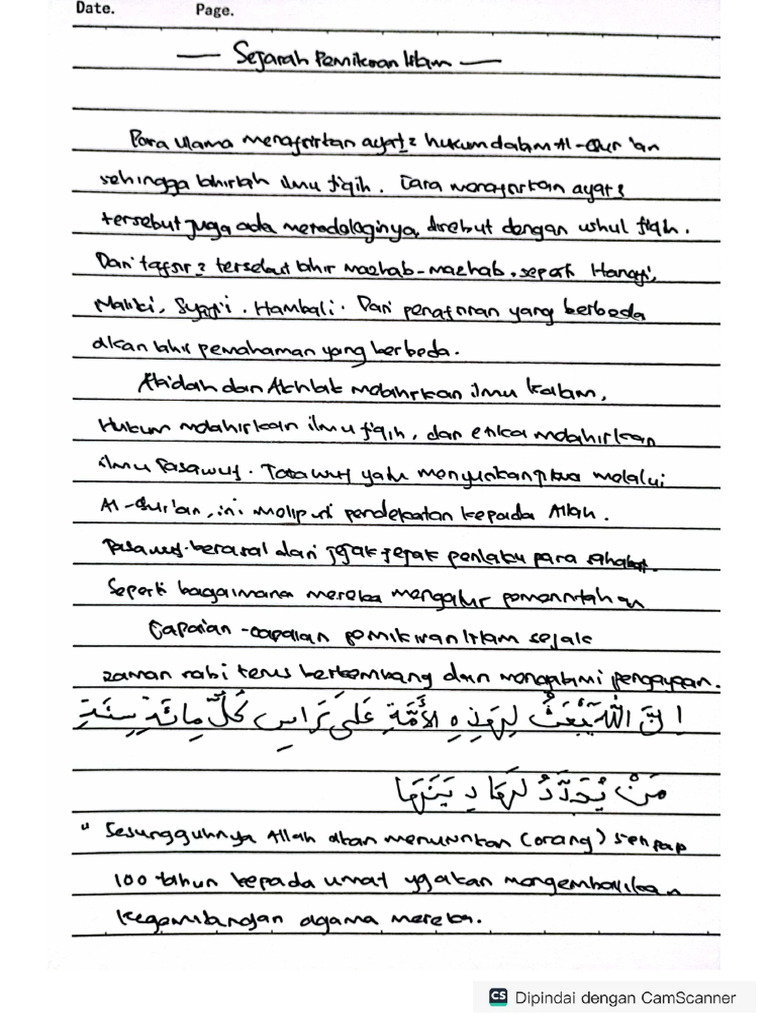 Date. Page.
— Sejarah Pemikiran Islam —
Para ulama menafsirkan ayat2 hukum dalam Al-Qur'an
sehingga lahirlah ilmu fiqih. Cara menafsirkan ayat2
tersebut juga ada metodologinya, disebut dengan ushul fiqh.
Dari tafsir2 tersebut lahir mazhab-mazhab, seperti Hanafi,
Maliki, Syafi'i, Hambali. Dari penafsiran yang berbeda
akan lahir pemahaman yang berbeda.
Akidah dan Akhlak melahirkan ilmu kalam,
Hukum melahirkan ilmu fiqih, dan etika melahirkan
ilmu Tasawuf. Tasawuf yaitu menyucikan jiwa melalui
Al-Qur'an, ini meliputi pendekatan kepada Allah.
Tasawuf berasal dari jejak-jejak perilaku para sahabat
Seperti bagaimana mereka mengatur pemerintahan
Capaian-capaian pemikiran Islam sejak
zaman nabi terus berkembang dan mengalami pengayaan.
اِنَّ اللّٰهَ يَبْعَثُ لِهَذِهِ الأُمَّةِ عَلَى رَاسِ كُلِّ مِائَةِ سَنَةِ
مَنْ يُجَدِّدُ لَهَا دِيْنَهَا
"Sesungguhnya Allah akan menurunkan (orang) setiap
100 tahun kepada umat yg akan mengembalikan
kegemilangan agama mereka.
CS Dipindai dengan CamScanner